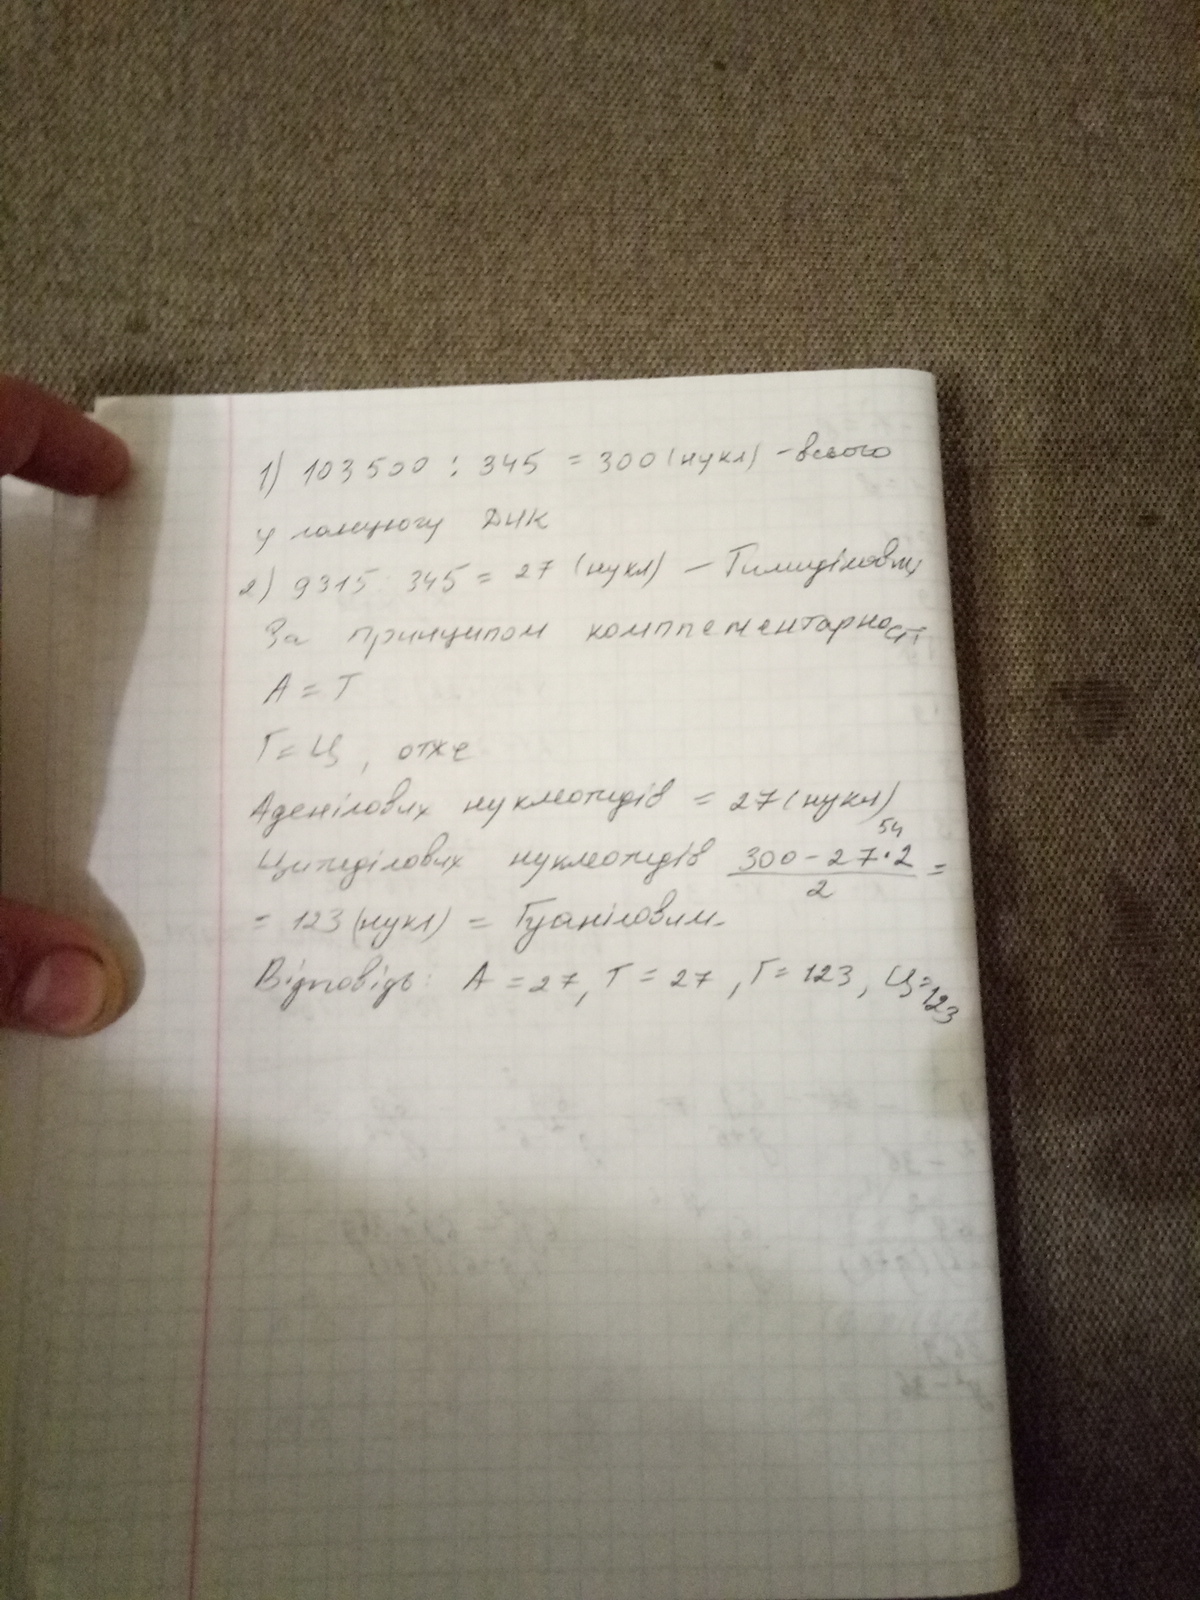 1) 103500 : 345 = 300 (нукл) - всього
у ланцюгу ДНК
2) 9315 : 345 = 27 (нукл) - Тимиділових
За принципом комплементарності
А = Т
Г = Ц , отже
Аденілових нуклеотидів = 27 (нукл)
54
Цитиділових нуклеотидів 300 - 27 · 2 / 2 =
= 123 (нукл) = Гуаніловим.
Відповідь: А = 27, Т = 27 , Г = 123 , Ц = 123